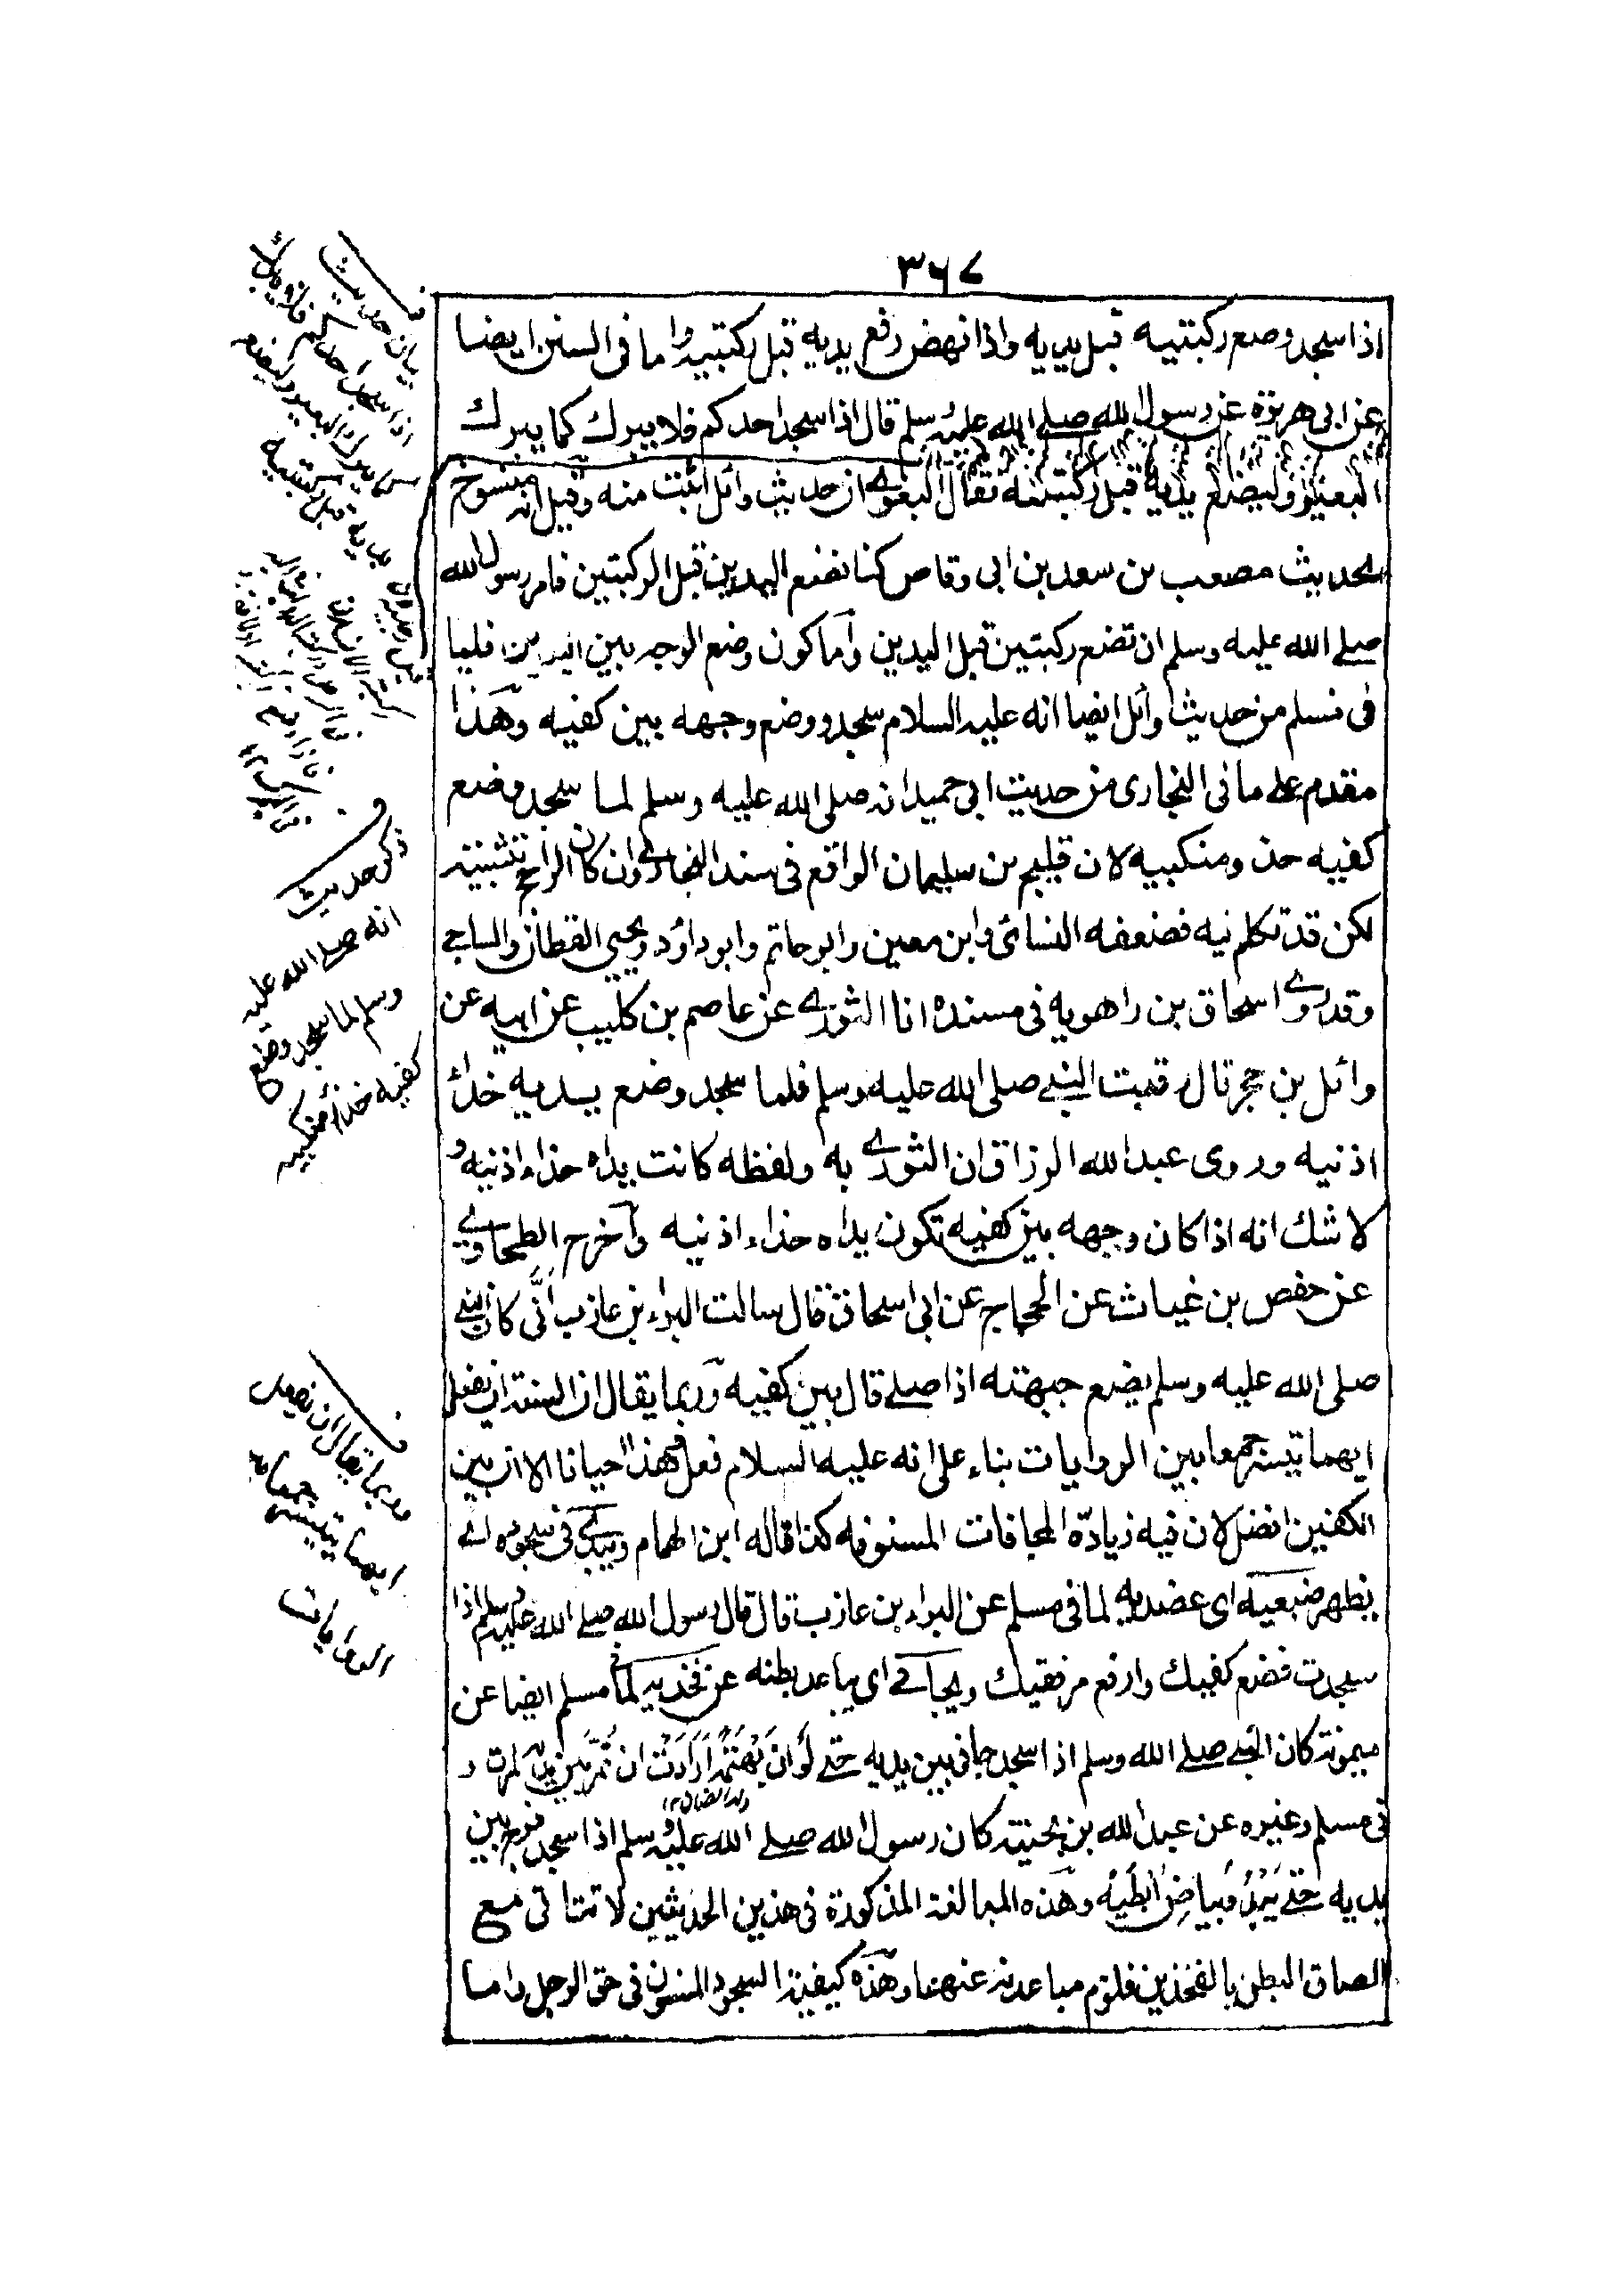 ٣٦٧
اذا سجد وضع ركبتيه قبل يديه واذا نهض رفع يديه قبل ركبتيه واما فى السنن ايضا
عن ابى هريرة عن رسول الله صلى الله عليه وسلم قال اذا سجد احدكم فلا يبرك كما يبرك
البعير وليضع يديه قبل ركبتيه فقال البغوى ان حديث وائل اثبت منه وقيل انه منسوخ
بحديث مصعب بن سعد بن ابى وقاص كنا نضع اليدين قبل الركبتين فامر رسول الله
صلى الله عليه وسلم ان تضع ركبتين قبل اليدين واما كون وضع الوجه بين اليدين فلما
فى مسلم من حديث وائل ايضا انه عليه السلام سجد ووضع وجهه بين كفيه وهذا
مقدم على ما فى البخارى من حديث ابى حميد انه صلى الله عليه وسلم لما سجد وضع
كفيه حذو منكبيه لان فليح بن سليمان الواقع فى سند البخارى وان كان الراجح تثبيته
لكن قد تكلم فيه فضعفه النسائى وابن معين وابو حاتم وابو داؤد ويحيى القطان والساجى
وقد روى اسحاق بن راهويه فى مسنده انا الثورى عن عاصم بن كليب عن ابيه عن
وائل بن حجر قال رقبت النبى صلى الله عليه وسلم فلما سجد وضع يديه حذاء
اذنيه وروى عبد الله الرزاق ان الثورى به ولفظه كانت يداه حذاء اذنيه و
لا شك انه اذا كان وجهه بين كفيه تكون يداه حذاء اذنيه واخرج الطحاوى
عن حفص بن غياث عن الحجاج عن ابى اسحاق قال سالت البراء بن عازب انى كان النبى
صلى الله عليه وسلم يضع جبهته اذا صلى قال بين كفيه وربما يقال ان السنة ان يفعل
ايهما تيسر جمعا بين الروايات بناء على انه عليه السلام فعل هذا احيانا الا ان بين
الكفين افضل لان فيه زيادة المجافات المسنونه كذا قاله ابن الهمام ويبدى فى سجوده اى
يظهر ضبعيه اى عضديه لما فى مسلم عن البراء بن عازب قال قال رسول الله صلى الله عليه وسلم اذا
سجدت فضع كفيك وارفع مرفقيك ويجافى اى يباعد بطنه عن فخذيه لما فى مسلم ايضا عن
ميمونة كان النبى صلى الله وسلم اذا سجد جافى بين يديه حتى لو ان بهمة ارادت ان تمر بين يديه لمرت و
ولد الضان ١٢
فى مسلم وغيره عن عبد الله بن بحينة كان رسول الله صلى الله عليه وسلم اذا سجد فرج بين
يديه حتى يبدو بياض ابطيه وهذه المبالغة المذكورة فى هذين الحديثين لا تتاتى مع
الصاق البطن بالفخذين فلزم مباعدته عنهما وهذه كيفية السجود المسنون فى حق الرجل واما
بيان حديث
اذا سجد احدكم فلا يبرك
كما يبرك البعير وليضع
يديه قبل ركبتيه
ذكر حديث
انه صلى الله عليه
وسلم لما سجد وضع
كفيه حذاء منكبيه
وربما يقال ان يفعل
ايهما تيسر جمعا بين
الروايات